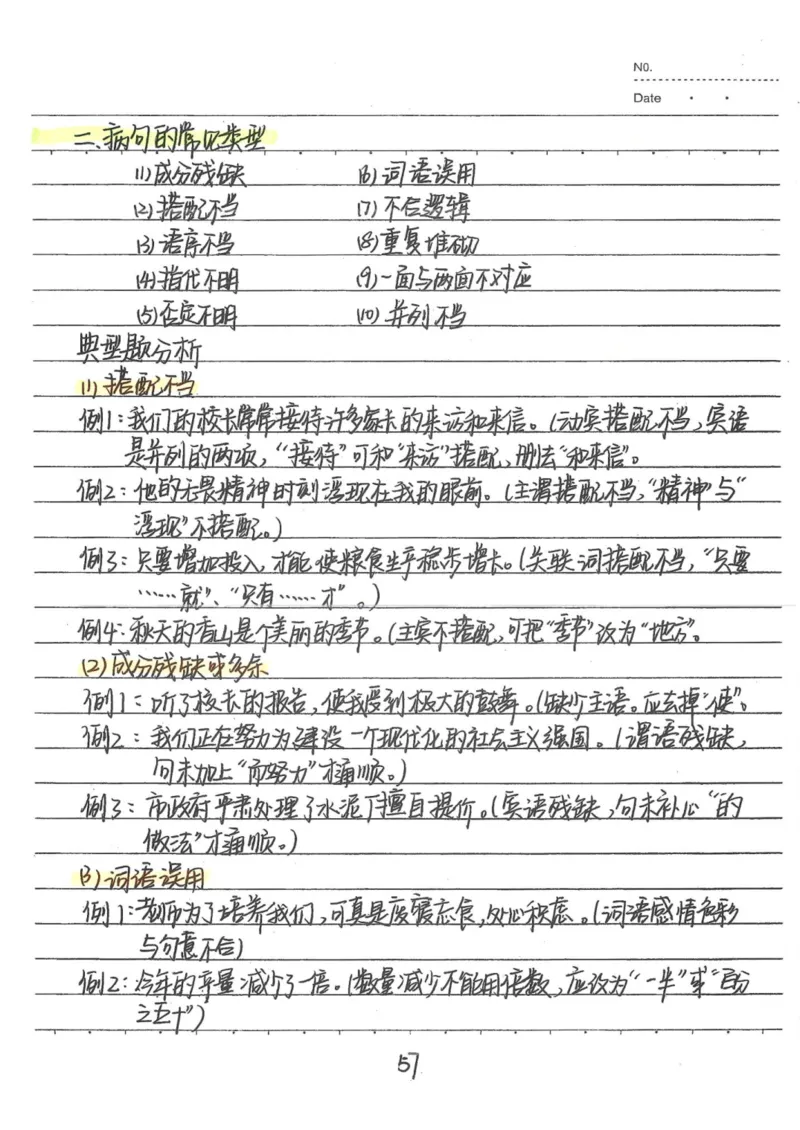 NO.
Date
二、病句的常见类型
(1)成分残缺 (6)词语误用
(2)搭配不当 (7)不合逻辑
(3)语序不当 (8)重复堆砌
(4)指代不明 (9)一面与两面不对应
(5)否定不明 (10)并列不当
典型题分析
(1)搭配不当
例1:我们的校长常常接待许多家长的来访和来信。(动宾搭配不当,宾语
是并列的两项,“接待”可和“来访”搭配,删去“和来信”。
例2:他的无畏精神时刻浮现在我的眼前。(主谓搭配不当,“精神”与“
浮现”不搭配。)
例3:只要增加投入,才能使粮食生产稳步增长。(关联词搭配不当,“只要
……就”、“只有……才”。)
例4:秋天的香山是个美丽的季节。(主宾不搭配,可把“季节”改为“地方”。
(2)成分残缺或多余
例1:听了校长的报告,使我受到极大的鼓舞。(缺少主语。应去掉“使”。
例2:我们正在努力为建设一个现代化的社会主义强国。(谓语残缺,
句末加上“而努力”才通顺。)
例3:市政府严肃处理了水泥厂擅自提价。(宾语残缺,句末补心“的
做法”才通顺。)
(3)词语误用
例1:老师为了培养我们,可真是废寝忘食,处心积虑。(词语感情色彩
与句意不合)
例2:今年的产量减少了一倍。(数量减少不能用倍数,应改为“一半”或“百分
之五十”)
57